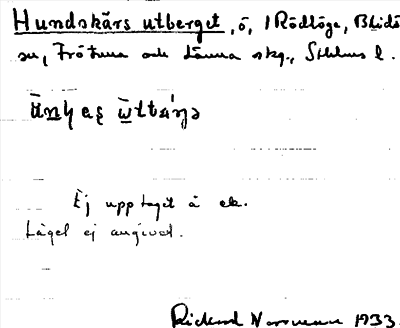 Hundskärs utberget, ö, i Rödlöga, Blidö
sn, Frötuna och Länna skg., Sthlms l.
Ej upptaget å ek.
Läget ej angivet.
Rickard 1933.